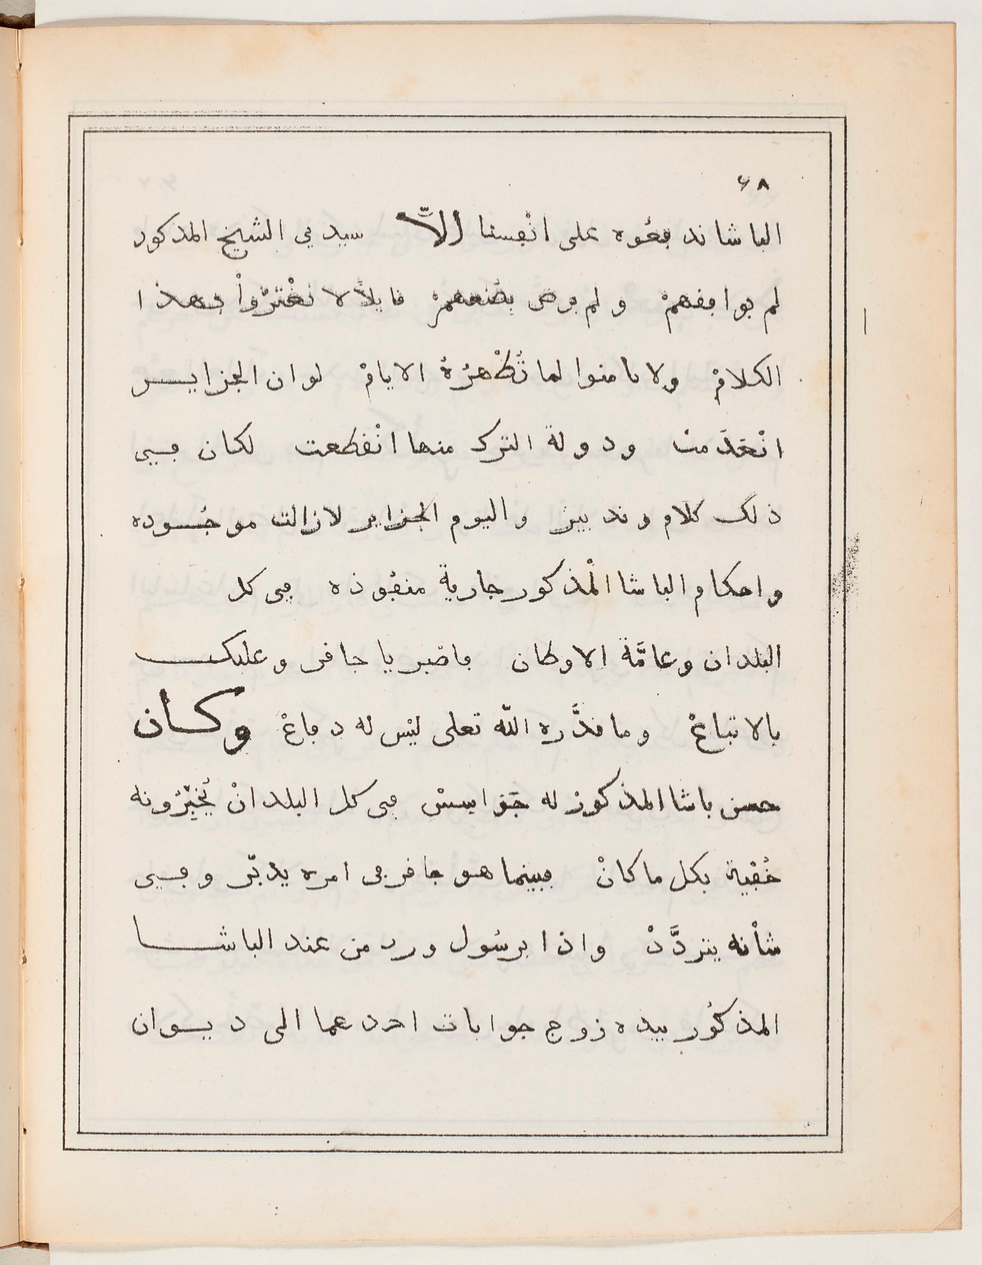 ٦٨
الباشا ندفعوه على انْفسنا إلاّ سيدي الشيخ المذكور
لم يوافقهمْ ولم يرض بصُنعهمْ قايلاً لا تغْترّواْ بهذا
الكلامْ ولا تامنوا لما تُظْهرُهُ الايامْ لو ان الجزايــر
انْعَدَمتْ ودولة الترك منها انْقطعت لكان فــي
ذلك كلام وتدبيرْ واليوم الجزاير لازالت موجُــوده
واحكام الباشا الْمذكور جارية منفُوذه في كل
البلدان وعامَّة الاوطان فاصْبر يا حافر وعليك
بالاتباعْ وما قدَّره اللّه تعلى ليْس له دفاعْ وكــان
حسن باشا المذكورْ له جَوَاسِسْ في كل البلدانْ يُخبِّرُونه
خُفْية بكل ما كانْ فبينما هــو حافر في امره يدبّر وفــي
شأنه يتردَّدْ واذا برسُول ورد من عند الباشــا
المذكُور بيده زوج جوابات احدهما الى ديــوان